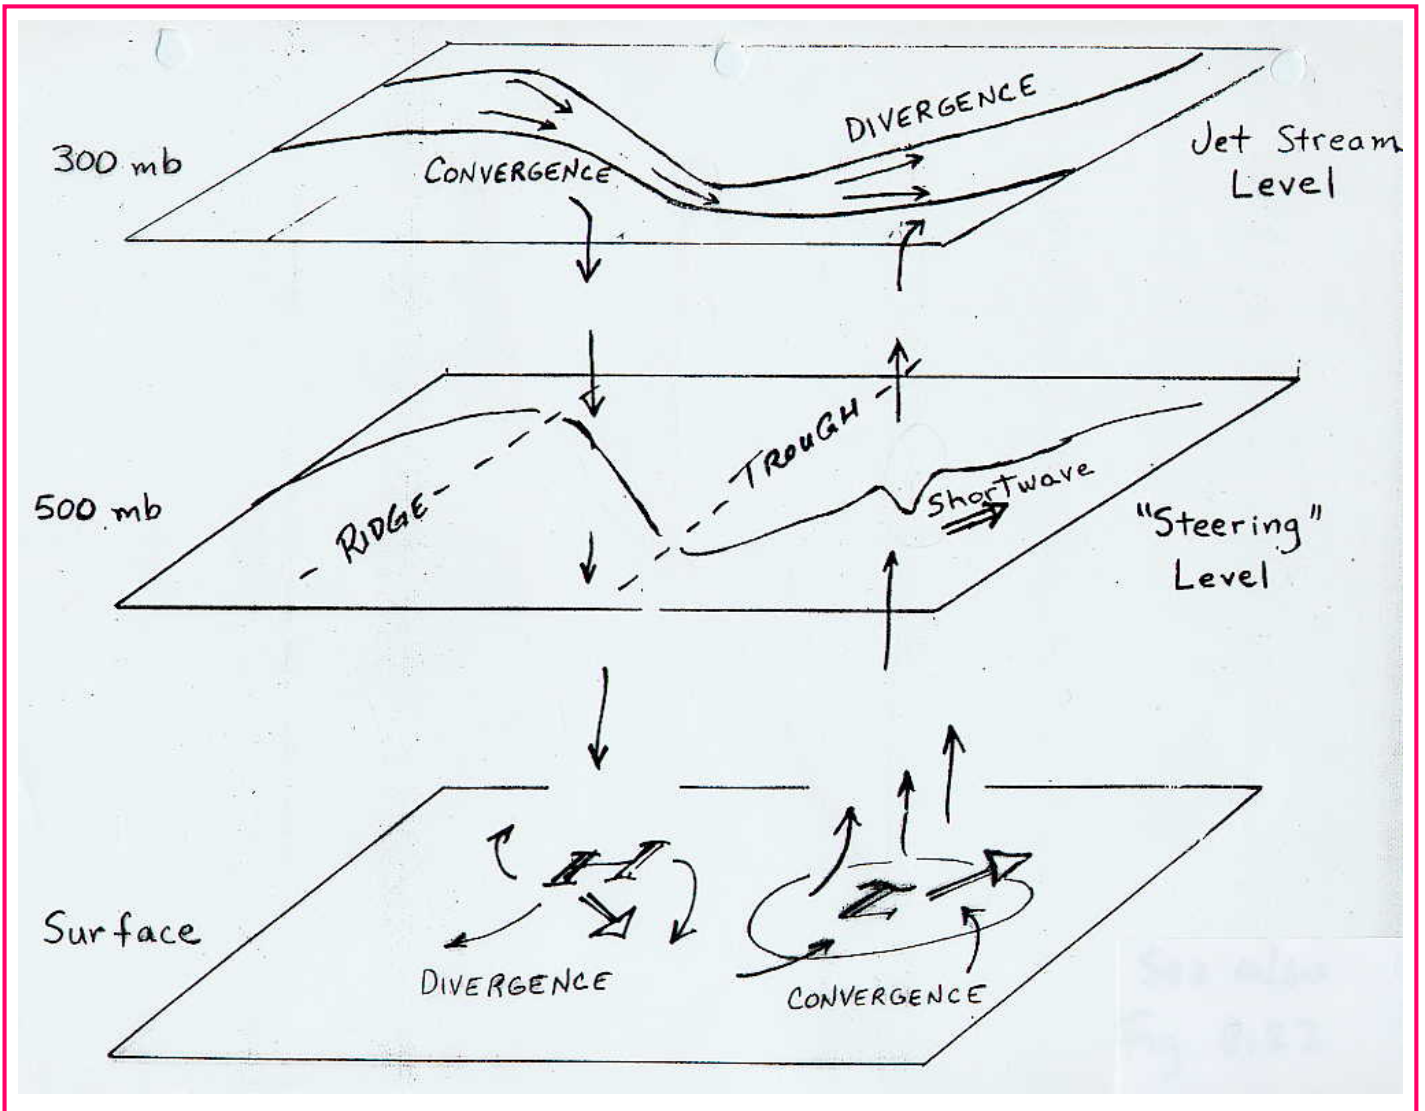 300 mb
CONVERGENCE
DIVERGENCE
Jet Stream
Level
500 mb
RIDGE
TROUGH
Shortwave
"Steering"
Level
Surface
H
L
DIVERGENCE
CONVERGENCE
See also
Fig 8.22